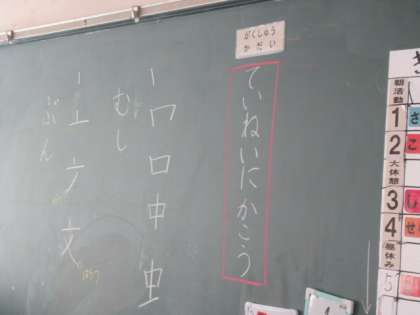 がくしゅう
かだい
ていねいにかこう
丨
口
中
虫
むし
文
ぶん
朝活動
1
さ
2
こ
大休憩
3
し
4
せ
昼休み
5